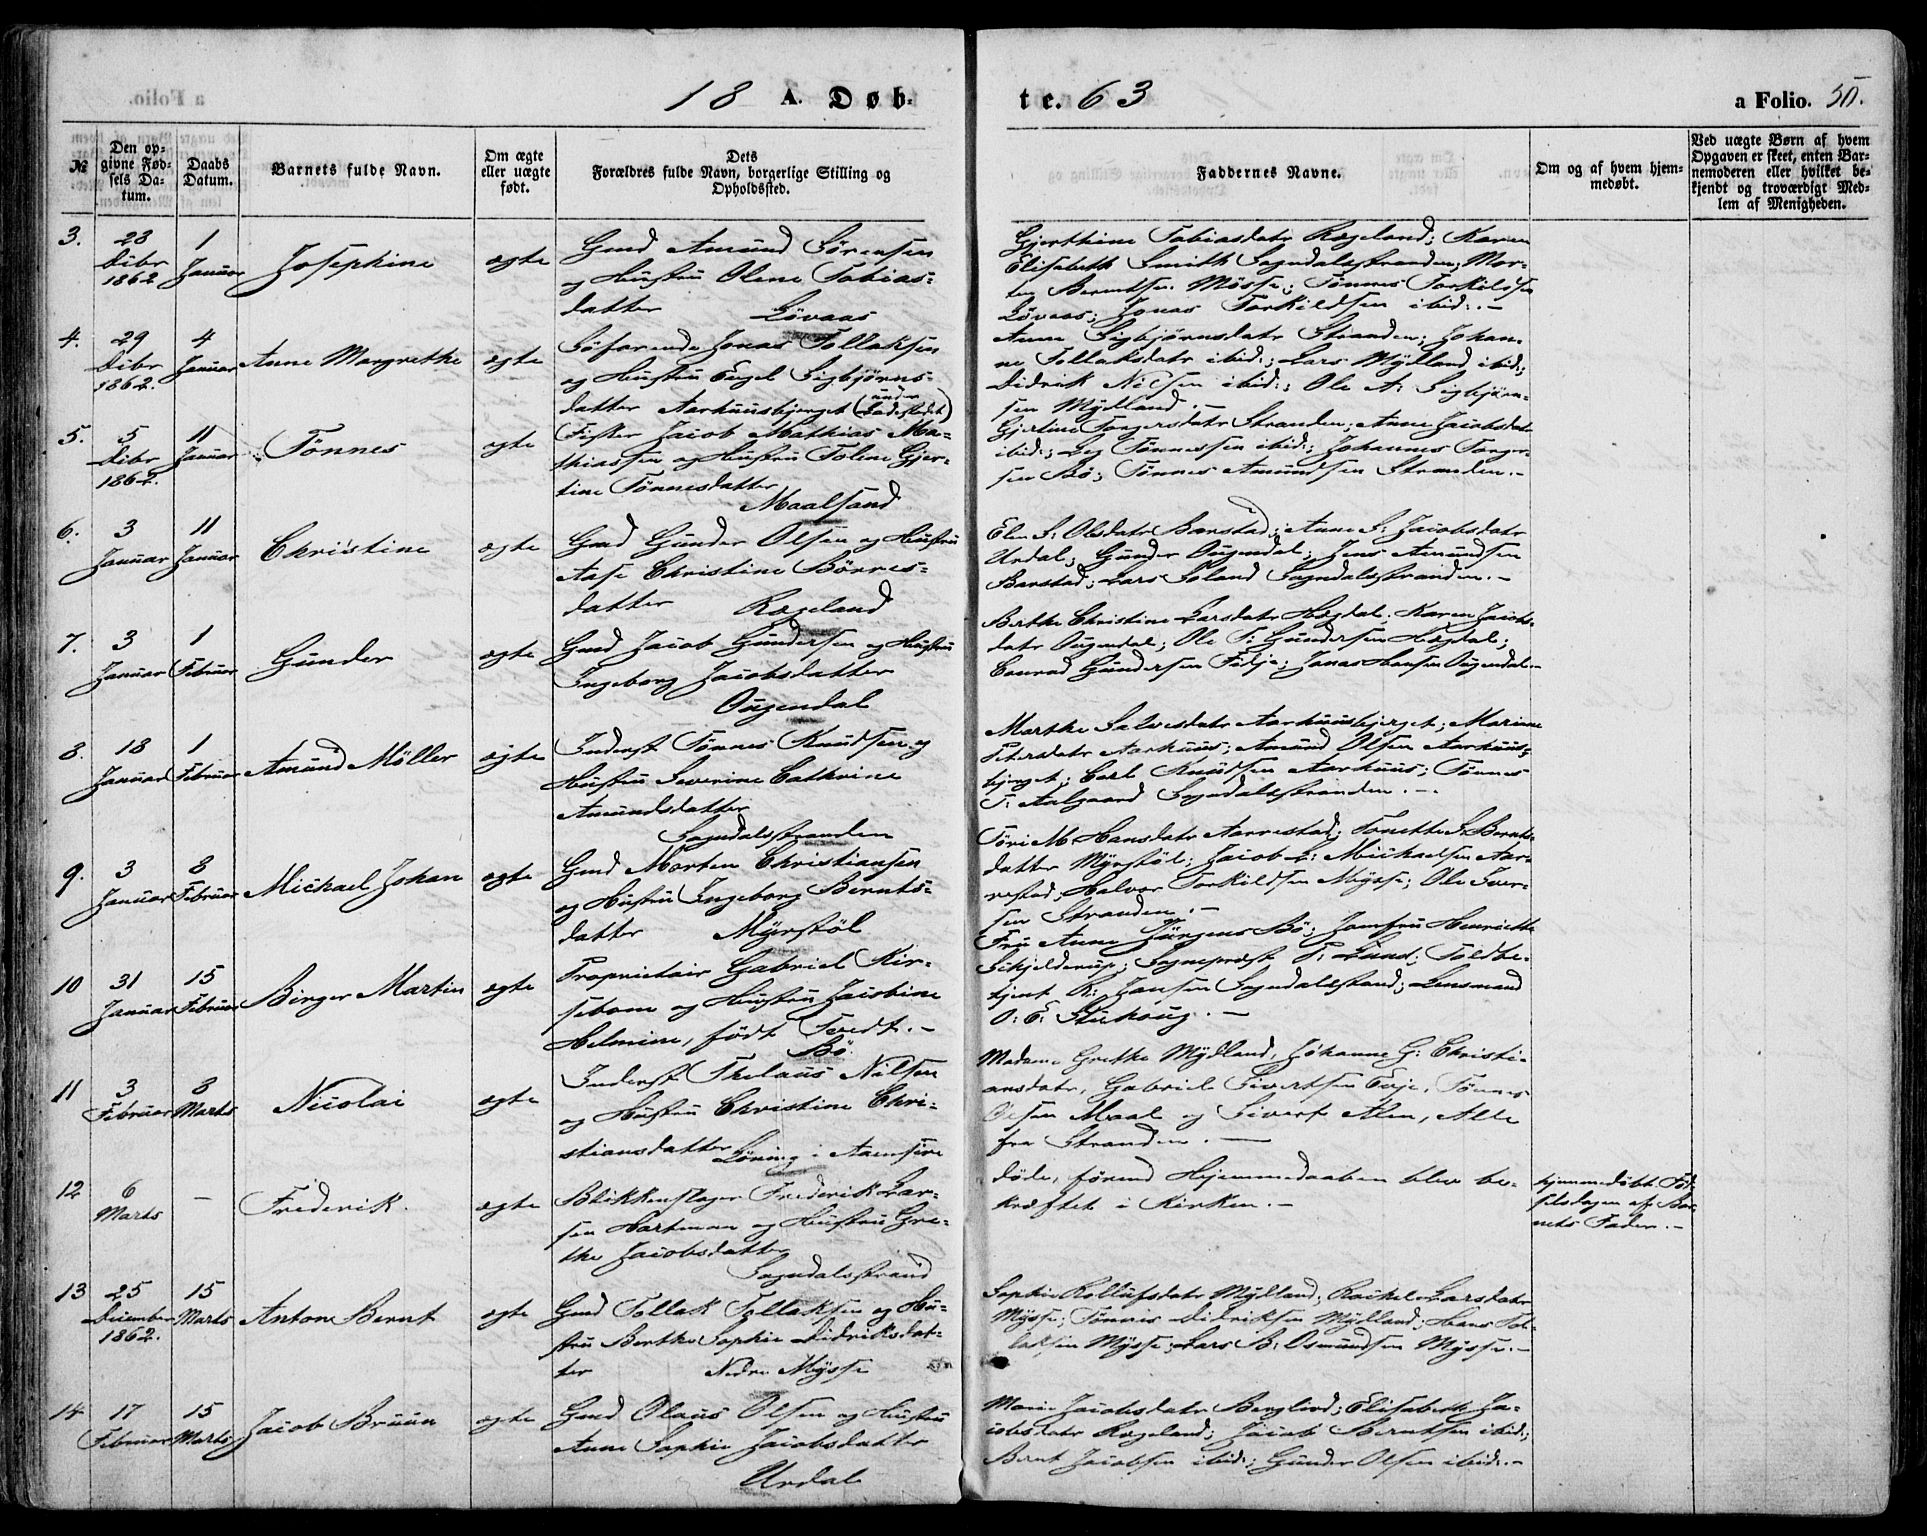 18 A. Døb-
te. 63
a Folio. 50.
№
Den op-
givne Fød-
sels Da-
tum.
Daabs
Datum.
Barnets fulde Navn.
Om ægte
eller uægte
født.
Dets
Forældres fulde Navn, borgerlige Stilling og
Opholdssted.
Faddernes Navne.
Om og af hvem hjem-
medøbt.
Ved uægte Børn af hvem
Opgaven er skeet, enten Bar-
nemoderen eller hvilket be-
kjendt og troværdigt Med-
lem af Menigheden.
3.
28
Dcbr
1862
1
Januar
Josephine
ægte
Gmd Amund Sørensen
og Hustru Olene Tobias-
datter Løvaas
Gjerthine Tobiasdatr Rægeland; Karen
Elisabeth Smith Sogndalsstranden; Mor-
ten Berntsen Mysse; Tønnes Torkildsen
Løvaas; Jonas Torkildsen ibid:.-
4.
29
Dcbr
1862.
4
Januar
Anne Margrethe
ægte
Søfarende Jonas Tollaksen
og Hustru Engel Sigbjørns-
datter Aarhuusbjerget (under
Ladestedet)
Anne Sigbjørnsdatr Stranden; Johan-
ne Tollaksdatr ibid:; Lars Mydland ibid:;
Didrik Nilsen ibid:; Ole A: Sigbjørn-
sen Mydland.-
5.
5
Dcbr
1862.
11
Januar
Tønnes
ægte
Fisker Jacob Mathias Ma-
thiassen og Hustru Tolene Gjer-
tine Tønnesdatter
Maalsand
Gjertine Torgersdatr Stranden; Anne Jacobsdatr
ibid:; Tønnessen ibid:; Johannes Torger-
sen Bø; Tønnes Amundsen Stranden.-
6.
3
Januar
11
Januar
Christine
ægte
Gmd Gunder Olsen og Hustru
Aase Christine Børres-
datter Rægeland
Elen S: Olsdatr Barstad; Anne S: Jacobsdatr
Urdal; Gunder Ougendal; Jens Amundsen
Barstad; Lars Soland Sogndalsstranden.-
7.
3
Januar
1
Februar
Gunder
ægte
Gmd Jacob Gundersen og Hustru
Ingeborg Jacobsdatter
Ougendal
Berthe Christine Larsdatr Hægdal; Karen Jacobs-
datr Ougendal; Ole T: Gundersen Hægdal;
Conrad Gundersen Fidje; Jonas Hansen Ougendal.-
8.
18
Januar
1
Februar
Amund Møller
ægte
Inderst Tønnes Knudsen og
Hustru Severine Cathrine
Amundsdatter
Sogndalsstranden
Marthe Salvesdatr Aarhuusbjerget; Marinne
Petersdatr Aarhuus; Amund Olsen Aarhuus-
bjerget; Carl Knudsen Aarhuus; Tønnes
T: Aalgaard Sogndalsstranden.-
9.
3
Januar
8
Februar
Michael Johan
ægte
Gmd Morten Christiansen
og Hustru Ingeborg Bernts-
datter Myrstøl
Tøri M: Hansdatr Aarrestad; Tonette S: Bernts-
datter Myrstøl; Jacob L: Michaelsen Aar-
restad; Halvor Torkildsen Mysse; Ole Iver-
sen Stranden.-
10
31
Januar
15
Februar
Birger Martin
ægte
Proprietair Gabriel Kir-
sebom og Hustru Jacobine
Helmine, født Tvedt.-
Bø.
Fru Anne Jürgens Bø; Jomfru Henriette
Schjelderup; Sognepræst P: Lund; Toldbe-
tjent R: Jansen Sogndalsstrand; Lensmand
O: E: Stuhoug.-
11
3
Februar
8
Marts
Nicolai
ægte
Inderst Thelaus Nilsen
og Hustru Christine Chri-
stiansdatter Løning i Aamsire
Madame Grethe Mydland, Johanne G: Christi-
ansdatr, Gabriel Sivertsen Eeje, Tønnes
Olsen Maal og Sivert Aten, Alle
fra Stranden.-
12
6
Marts
-
Frederik.
ægte
Blikkenslager Frederik Lar-
sen Hartman og Hustru Gre-
the Jacobsdatter
Sogndalsstrand
døde, førend Hjemmedaaben blev be-
kræftet i Kirken.-
hjemmedøbt Fød-
selsdagen af Bar-
nets Fader.-
13
25
December
1862.
15
Marts
Anton Bernt
ægte
Gmd Tollak Tollaksen og Hu-
stru Berthe Sophie Didriksdat-
ter Nedre Mysse
Sophie Rollufsdatr Mydland; Rachel Larsdatr
Mysse; Tønnes Didriksen Mydland; Hans Tol-
laksen Mysse; Lars B: Osmundsen Mysse.-
14
17
Februar
15
Marts
Jacob Bruun
ægte
Gmd Olaus Olsen og Hustru
Anne Sophie Jacobsdatter
Urdal
Marie Jacobsdatr Berglivd; Elisabeth Ja-
cobsdatr Rægeland; Jacob Berntsen ibid:;
Bernt Jacobsen ibid:; Gunder Olsen ibid:.-